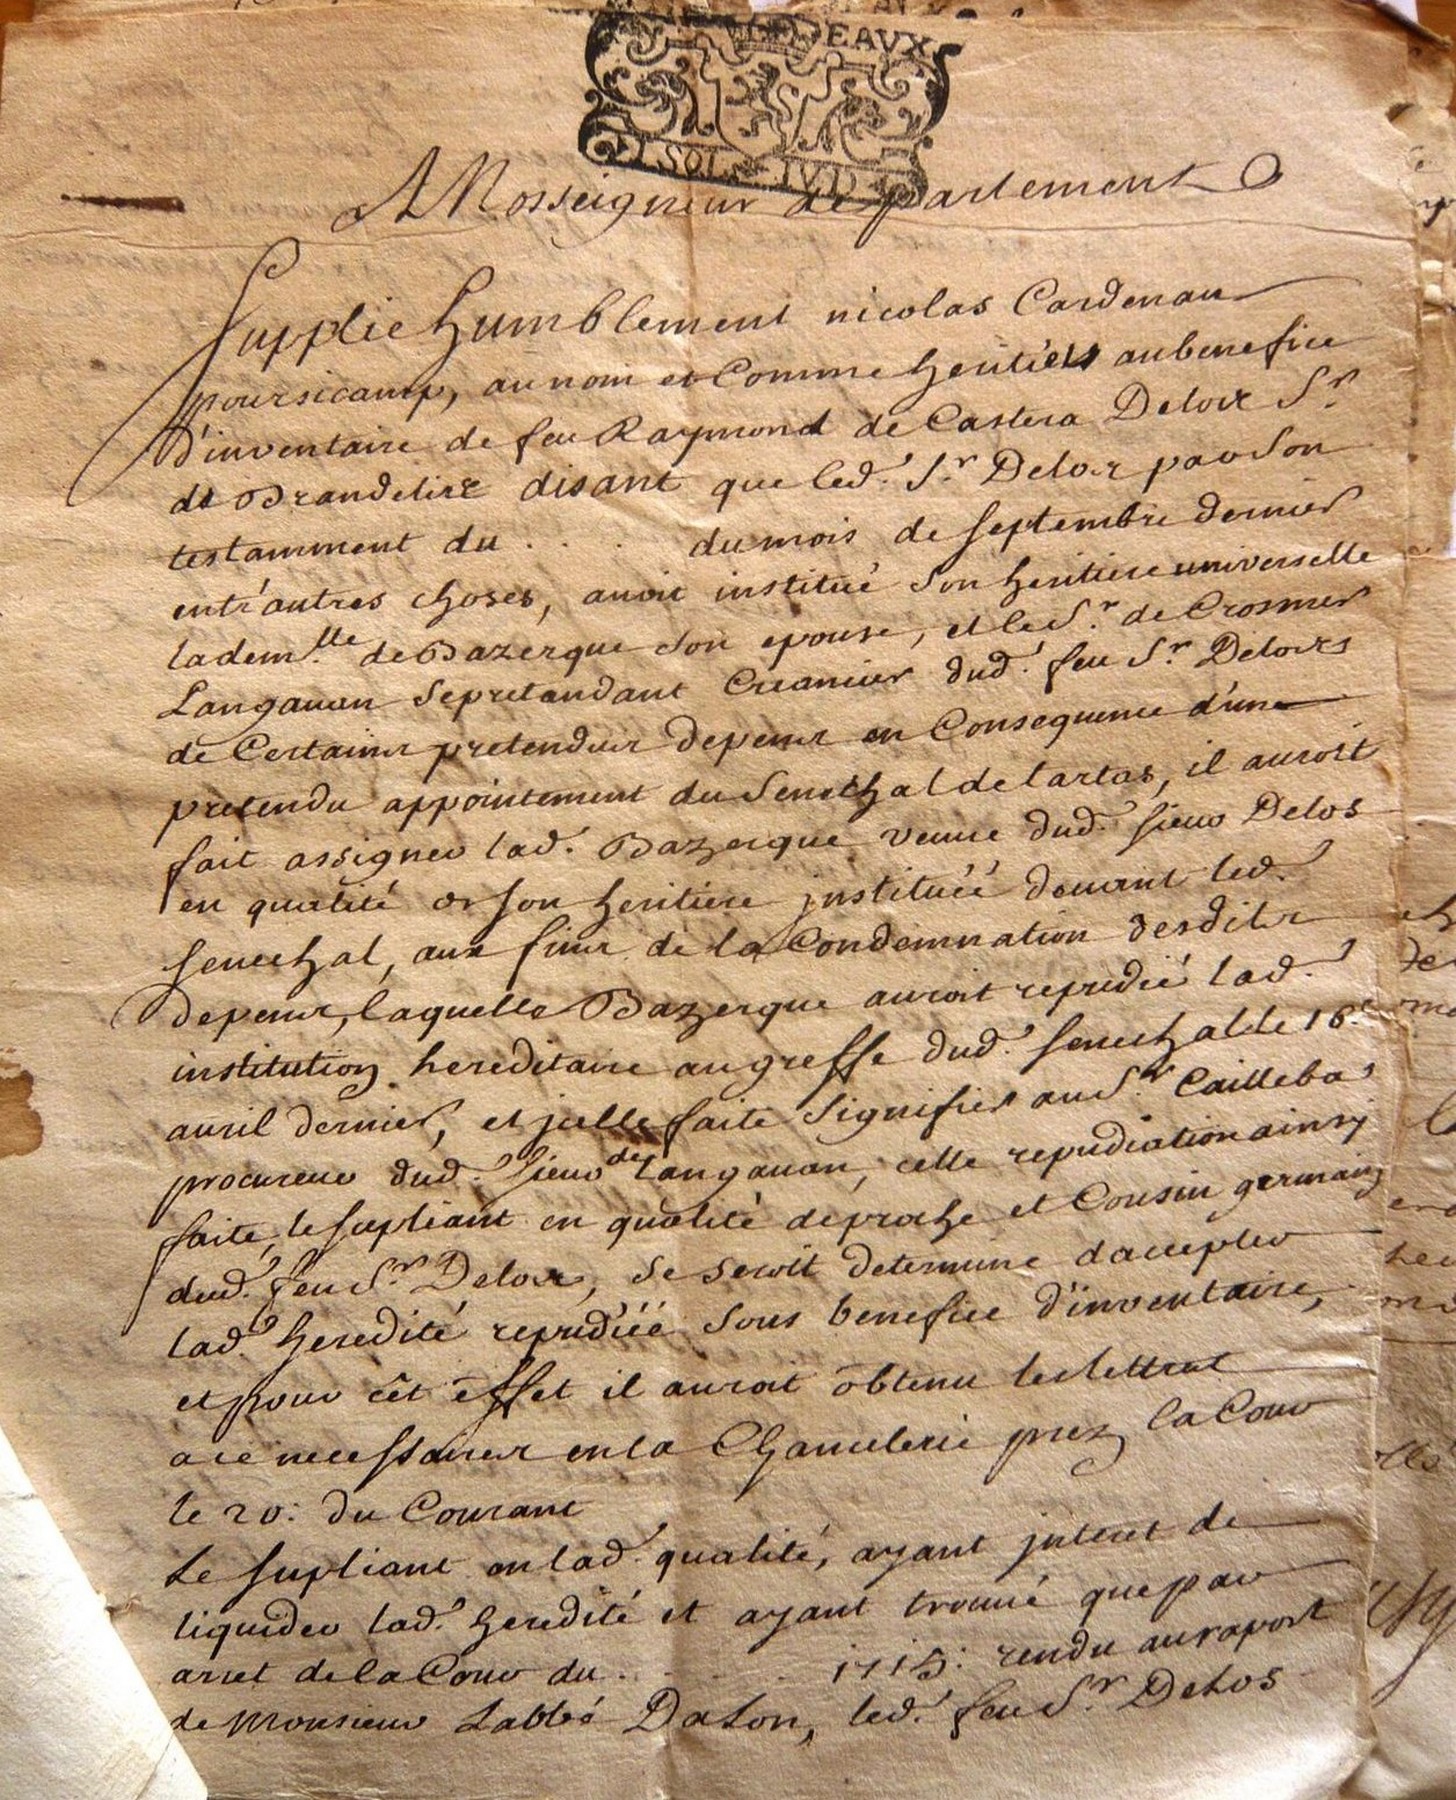 BORDEAUX
I SOL IVD
A Nosseigneur de parlement
Supplie humblement nicolas Cardenau
poursicamp, au nom et Comme heritiers au benefice
d'inventaire de feu Raymond de Castera Delor Sr.
de Brandelire disant que led. Sr. Delor par son
testamment du . . . . du mois de septembre dernier
entr'autres choses, auoit institué son heritiere universelle
la demlle. de Bazerque son epouse, et le Sr. de Crosmer
Langauan se pretandant Creancier dud. feu Sr. Delors
de Certains pretendus depens en Consequence d'une
pretendu appointement du Senechal de tartas, il auroit
fait assigner lad. Bazerque veuue dud. sieur Delos
en qualité de son heritiere jnstituéé deuant led.
senechal, aux fins de la Condemnation desdits
depens, laquelle Bazerque auroit repudié lad.
institution hereditaire au greffe dud. senechal le 16e
auril dernier, et jcelle faite signifier au Sr. Cailleba
procureur dud. sieur de Langauan, cette repudiation ainsy
faite, le supliant en qualité de proche et Cousin germain
dud. feu Sr. Delor, se seroit determiné d'accepter
lad. heredité repudiéé sous benefice d'inventaire,
et pour cêt effet il auroit obtenu les lettres
a ce necessaires en la Chancelerie prez la Cour
le 20. du Courant
Le supliant en lad. qualité, ayant jnteret de
liquider lad. heredité et ayant trouué que par
arret de la Cour du . . . . 1715. rendu au raport
de Monsieur Labbé Dalon, led. feu Sr. Delos